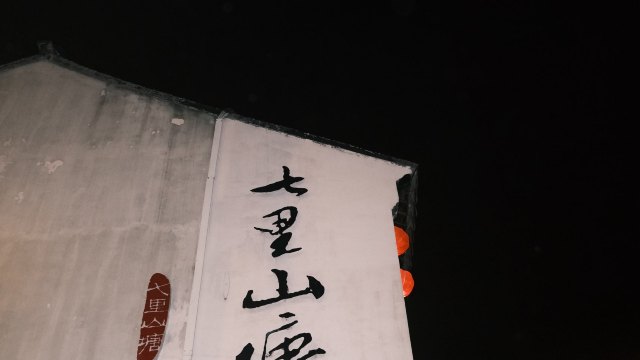 七里山塘
七里山塘